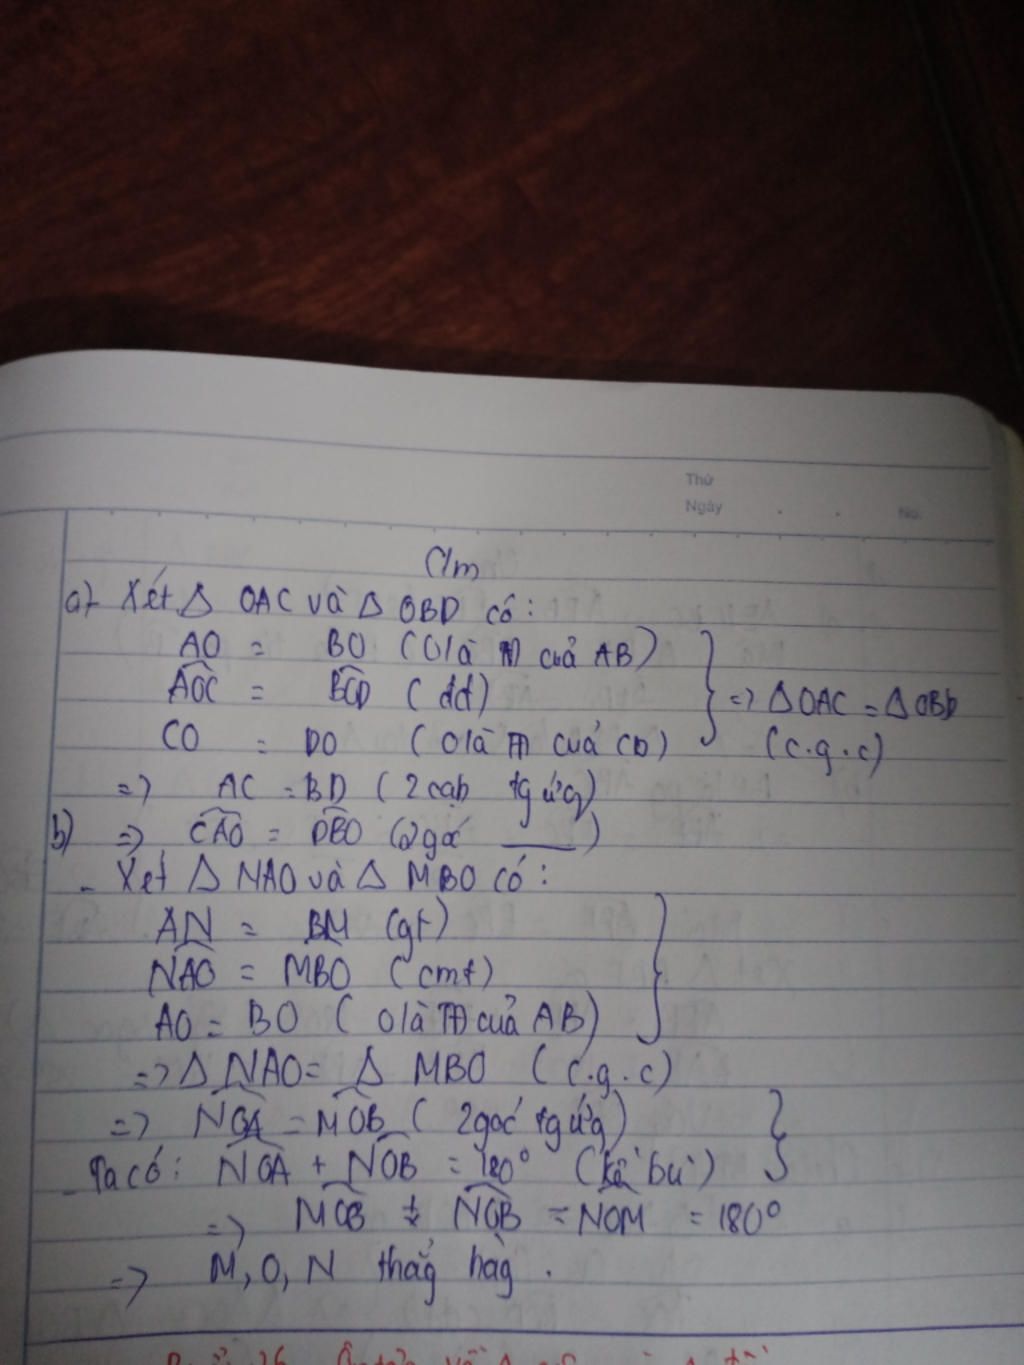 Thứ
Ngày . . No.
C/m
a) Xét Δ OAC và Δ OBD có:
AO = BO (O là TĐ cuả AB)
AOC = BOD (đđ) => Δ OAC = Δ OBD
CO = DO (O là TĐ cuả CD) (c.g.c)
=> AC = BD (2 cạh tg ứg)
b) => CAO = DBO (2 góc ___)
- Xét Δ NAO và Δ MBO có:
AN = BM (gt)
NAO = MBO (cmt)
AO = BO (O là TĐ cuả AB)
=> Δ NAO = Δ MBO (c.g.c)
=> NOA = MOB (2 góc tg ứg)
- Ta có: NOA + NOB = 180° (kề bù)
=> MOB + NOB = NOM = 180°
=> M, O, N thẳg hàg .